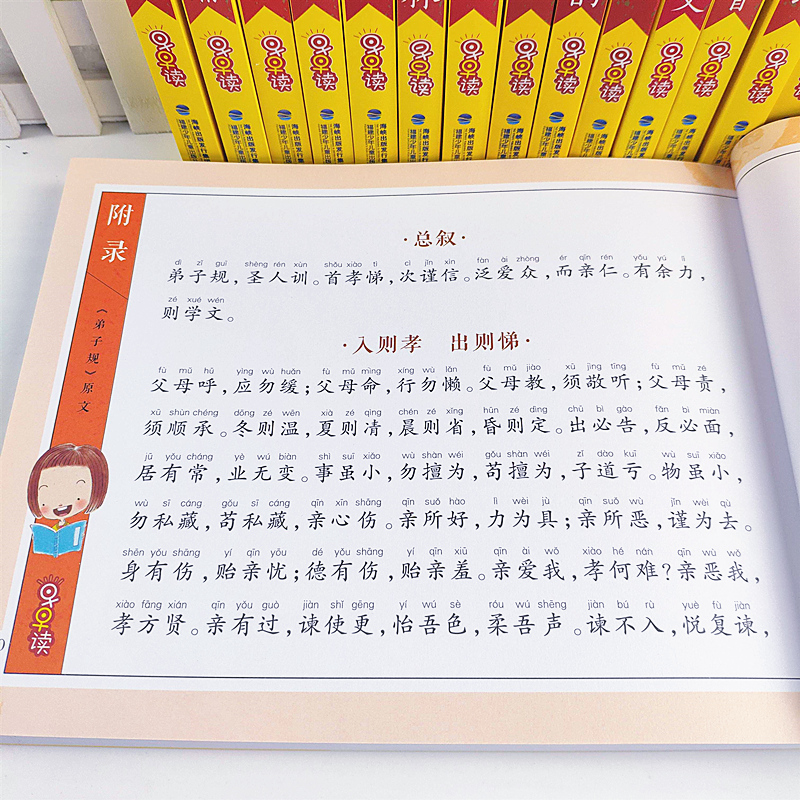 附录
《弟子规》原文
早早读
·总叙·
dì zǐ guī shèng rén xùn shǒu xiào tì cì jǐn xìn fàn ài zhòng ér qīn rén yǒu yú lì
弟子规，圣人训。首孝悌，次谨信。泛爱众，而亲仁。有余力，
zé xué wén
则学文。
·入则孝 出则悌·
fù mǔ hū yìng wù huǎn fù mǔ mìng xíng wù lǎn fù mǔ jiào xū jìng tīng fù mǔ zé
父母呼，应勿缓；父母命，行勿懒。父母教，须敬听；父母责，
xū shùn chéng dōng zé wēn xià zé qìng chén zé xǐng hūn zé dìng chū bì gào fǎn bì miàn
须顺承。冬则温，夏则凊，晨则省，昏则定。出必告，反必面，
jū yǒu cháng yè wú biàn shì suī xiǎo wù shàn wéi gǒu shàn wéi zǐ dào kuī wù suī xiǎo
居有常，业无变。事虽小，勿擅为，苟擅为，子道亏。物虽小，
wù sī cáng gǒu sī cáng qīn xīn shāng qīn suǒ hào lì wèi jù qīn suǒ wù jǐn wèi qù
勿私藏，苟私藏，亲心伤。亲所好，力为具；亲所恶，谨为去。
shēn yǒu shāng yí qīn yōu dé yǒu shāng yí qīn xiū qīn ài wǒ xiào hé nán qīn wù wǒ
身有伤，贻亲忧；德有伤，贻亲羞。亲爱我，孝何难？亲恶我，
xiào fāng xián qīn yǒu guò jiàn shǐ gēng yí wú sè róu wú shēng jiàn bú rù yuè fù jiàn
孝方贤。亲有过，谏使更，怡吾色，柔吾声。谏不入，悦复谏，